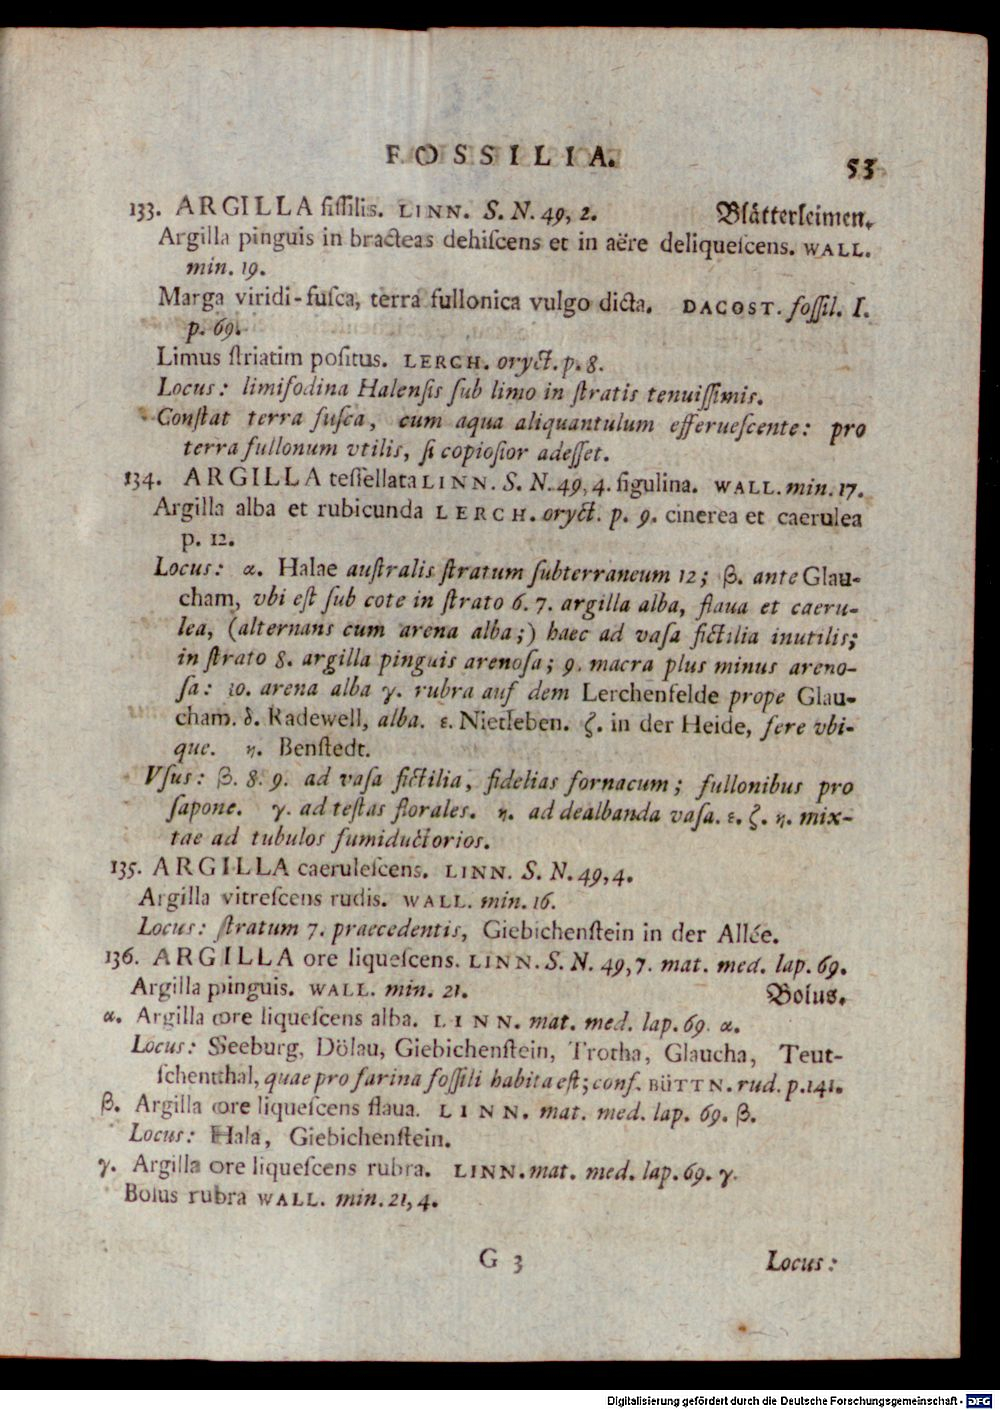 FOSSILIA.
53
133. ARGILLA fiſſilis. LINN. S. N. 49, 2. Blätterleimen.
Argilla pinguis in bracteas dehiſcens et in aëre deliqueſcens. WALL.
min. 19.
Marga viridi-fuſca, terra fullonica vulgo dicta. DACOST. foſſil. I.
p. 69.
Limus ſtriatim poſitus. LERCH. oryct. p. 8.
Locus: limifodina Halenſis ſub limo in ſtratis tenuiſſimis.
Conſtat terra fuſca, cum aqua aliquantulum efferueſcente: pro
terra fullonum vtilis, ſi copioſior adeſſet.
134. ARGILLA teſſellata LINN. S. N. 49, 4. figulina. WALL. min. 17.
Argilla alba et rubicunda LERCH. oryct. p. 9. cinerea et caerulea
p. 12.
Locus: α. Halae auſtralis ſtratum ſubterraneum 12; β. ante Glau-
cham, vbi eſt ſub cote in ſtrato 6. 7. argilla alba, flaua et caeru-
lea, (alternans cum arena alba;) haec ad vaſa fictilia inutilis;
in ſtrato 8. argilla pinguis arenoſa; 9. macra plus minus areno-
ſa: 10. arena alba γ. rubra auf dem Lerchenfelde prope Glau-
cham. δ. Radewell, alba. ε. Nietleben. ζ. in der Heide, fere vbi-
que. η. Benſtedt.
Vſus: β. 8. 9. ad vaſa fictilia, fidelias fornacum; fullonibus pro
ſapone. γ. ad teſtas florales. η. ad dealbanda vaſa. ε. ζ. η. mix-
tae ad tubulos fumiductorios.
135. ARGILLA caeruleſcens. LINN. S. N. 49, 4.
Argilla vitreſcens rudis. WALL. min. 16.
Locus: ſtratum 7. praecedentis, Giebichenſtein in der Allée.
136. ARGILLA ore liqueſcens. LINN. S. N. 49, 7. mat. med. lap. 69.
Argilla pinguis. WALL. min. 21. Bolus.
α. Argilla ore liqueſcens alba. LINN. mat. med. lap. 69. α.
Locus: Seeburg, Dölau, Giebichenſtein, Trotha, Glaucha, Teut-
ſchenthal, quae pro farina foſſili habita eſt; conf. BÜTTN. rud. p. 141.
β. Argilla ore liqueſcens flaua. LINN. mat. med. lap. 69. β.
Locus: Hala, Giebichenſtein.
γ. Argilla ore liqueſcens rubra. LINN. mat. med. lap. 69. γ.
Bolus rubra WALL. min. 21, 4.
G 3
Locus:
Digitalisierung gefördert durch die Deutsche Forschungsgemeinschaft - DFG